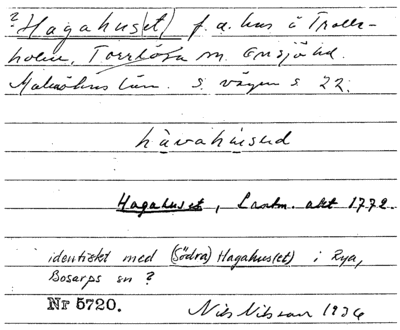 ? Hagahus(et) f.d. hus å Trolle-
holm, Torrlösa sn. Onsjö hd.
Malmöhus län. S. vägen s 22.
håvahused
Hagahuset, Lantm. akt 1772.
identiskt med (Södra) Hagahus(et) i Rya,
Bosarps sn ?
Nr 5720.
Nils Nilsson 1936